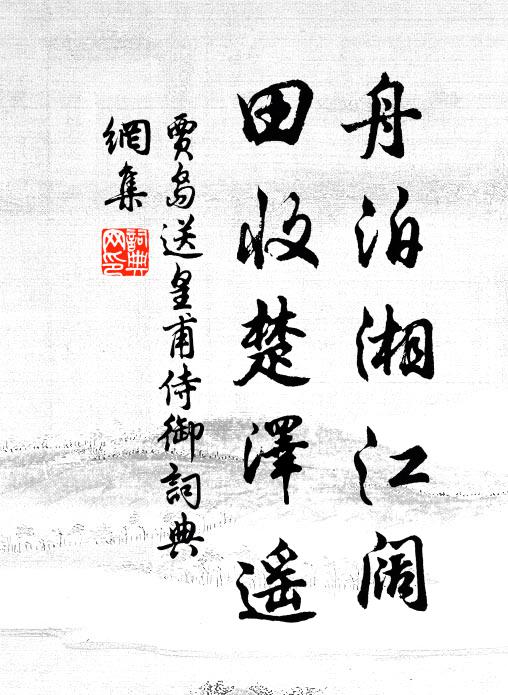 舟泊湘江阔
田收楚澤遥
賈島送皇甫侍御詞典
網集
詞典
网印